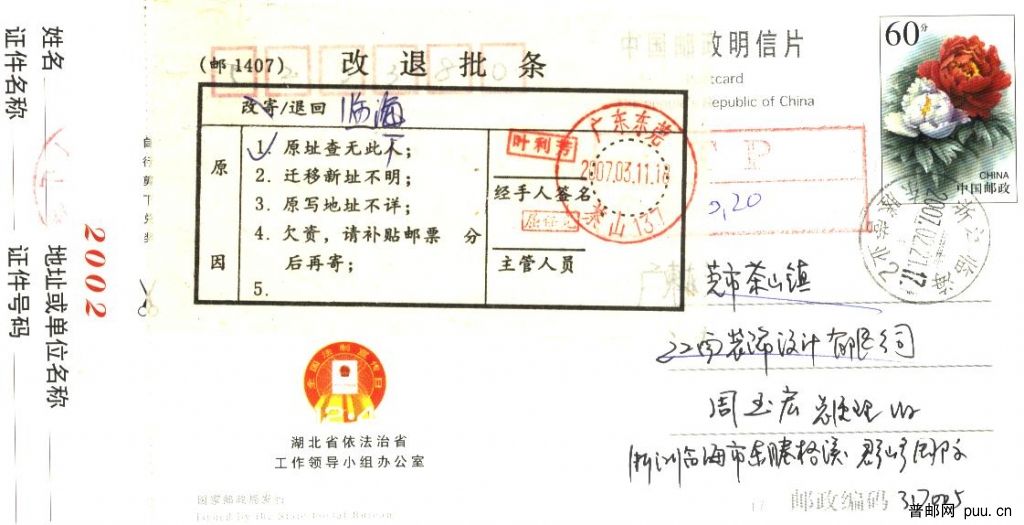 姓名
证件名称
地址或单位名称
证件号码
2002
(邮 1407) 改退批条
改寄/退回 临海
原因
1. 原址查无此人;
2. 迁移新址不明;
3. 原写地址不详;
4. 欠资,请补贴邮票 分
后再寄;
5.
叶利芳
经手人签名
主管人员
广东东莞
2007.03.11.18
茶山 137
中国邮政明信片
Republic of China
60分
CHINA
中国邮政
浙江临海
2007.02.21.17
0.20
莞市茶山镇
江南装饰设计有限公司
周玉宏 总经理 收
浙江临海市东塍格溪
全国法制宣传日
12·4
湖北省依法治省
工作领导小组办公室
国家邮政局发行
Issued by the State Postal Bureau
邮政编码 317005
普邮网 puu.cn